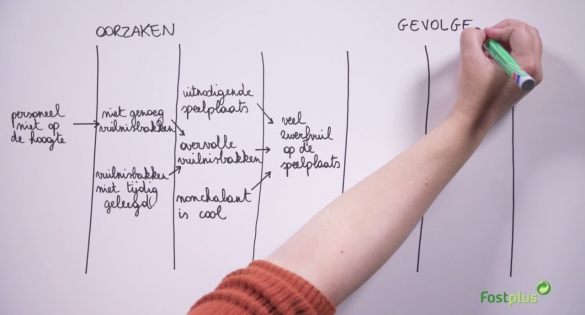 OORZAKEN
GEVOLGE
personeel
niet op
de hoogte
niet genoeg
vuilnisbakken
vuilnisbakken
niet tijdig
geleegd
uitnodigende
speelplaats
overvolle
vuilnisbakken
nonchalant
is cool
veel
zwerfvuil
op de
speelplaats
Fostplus